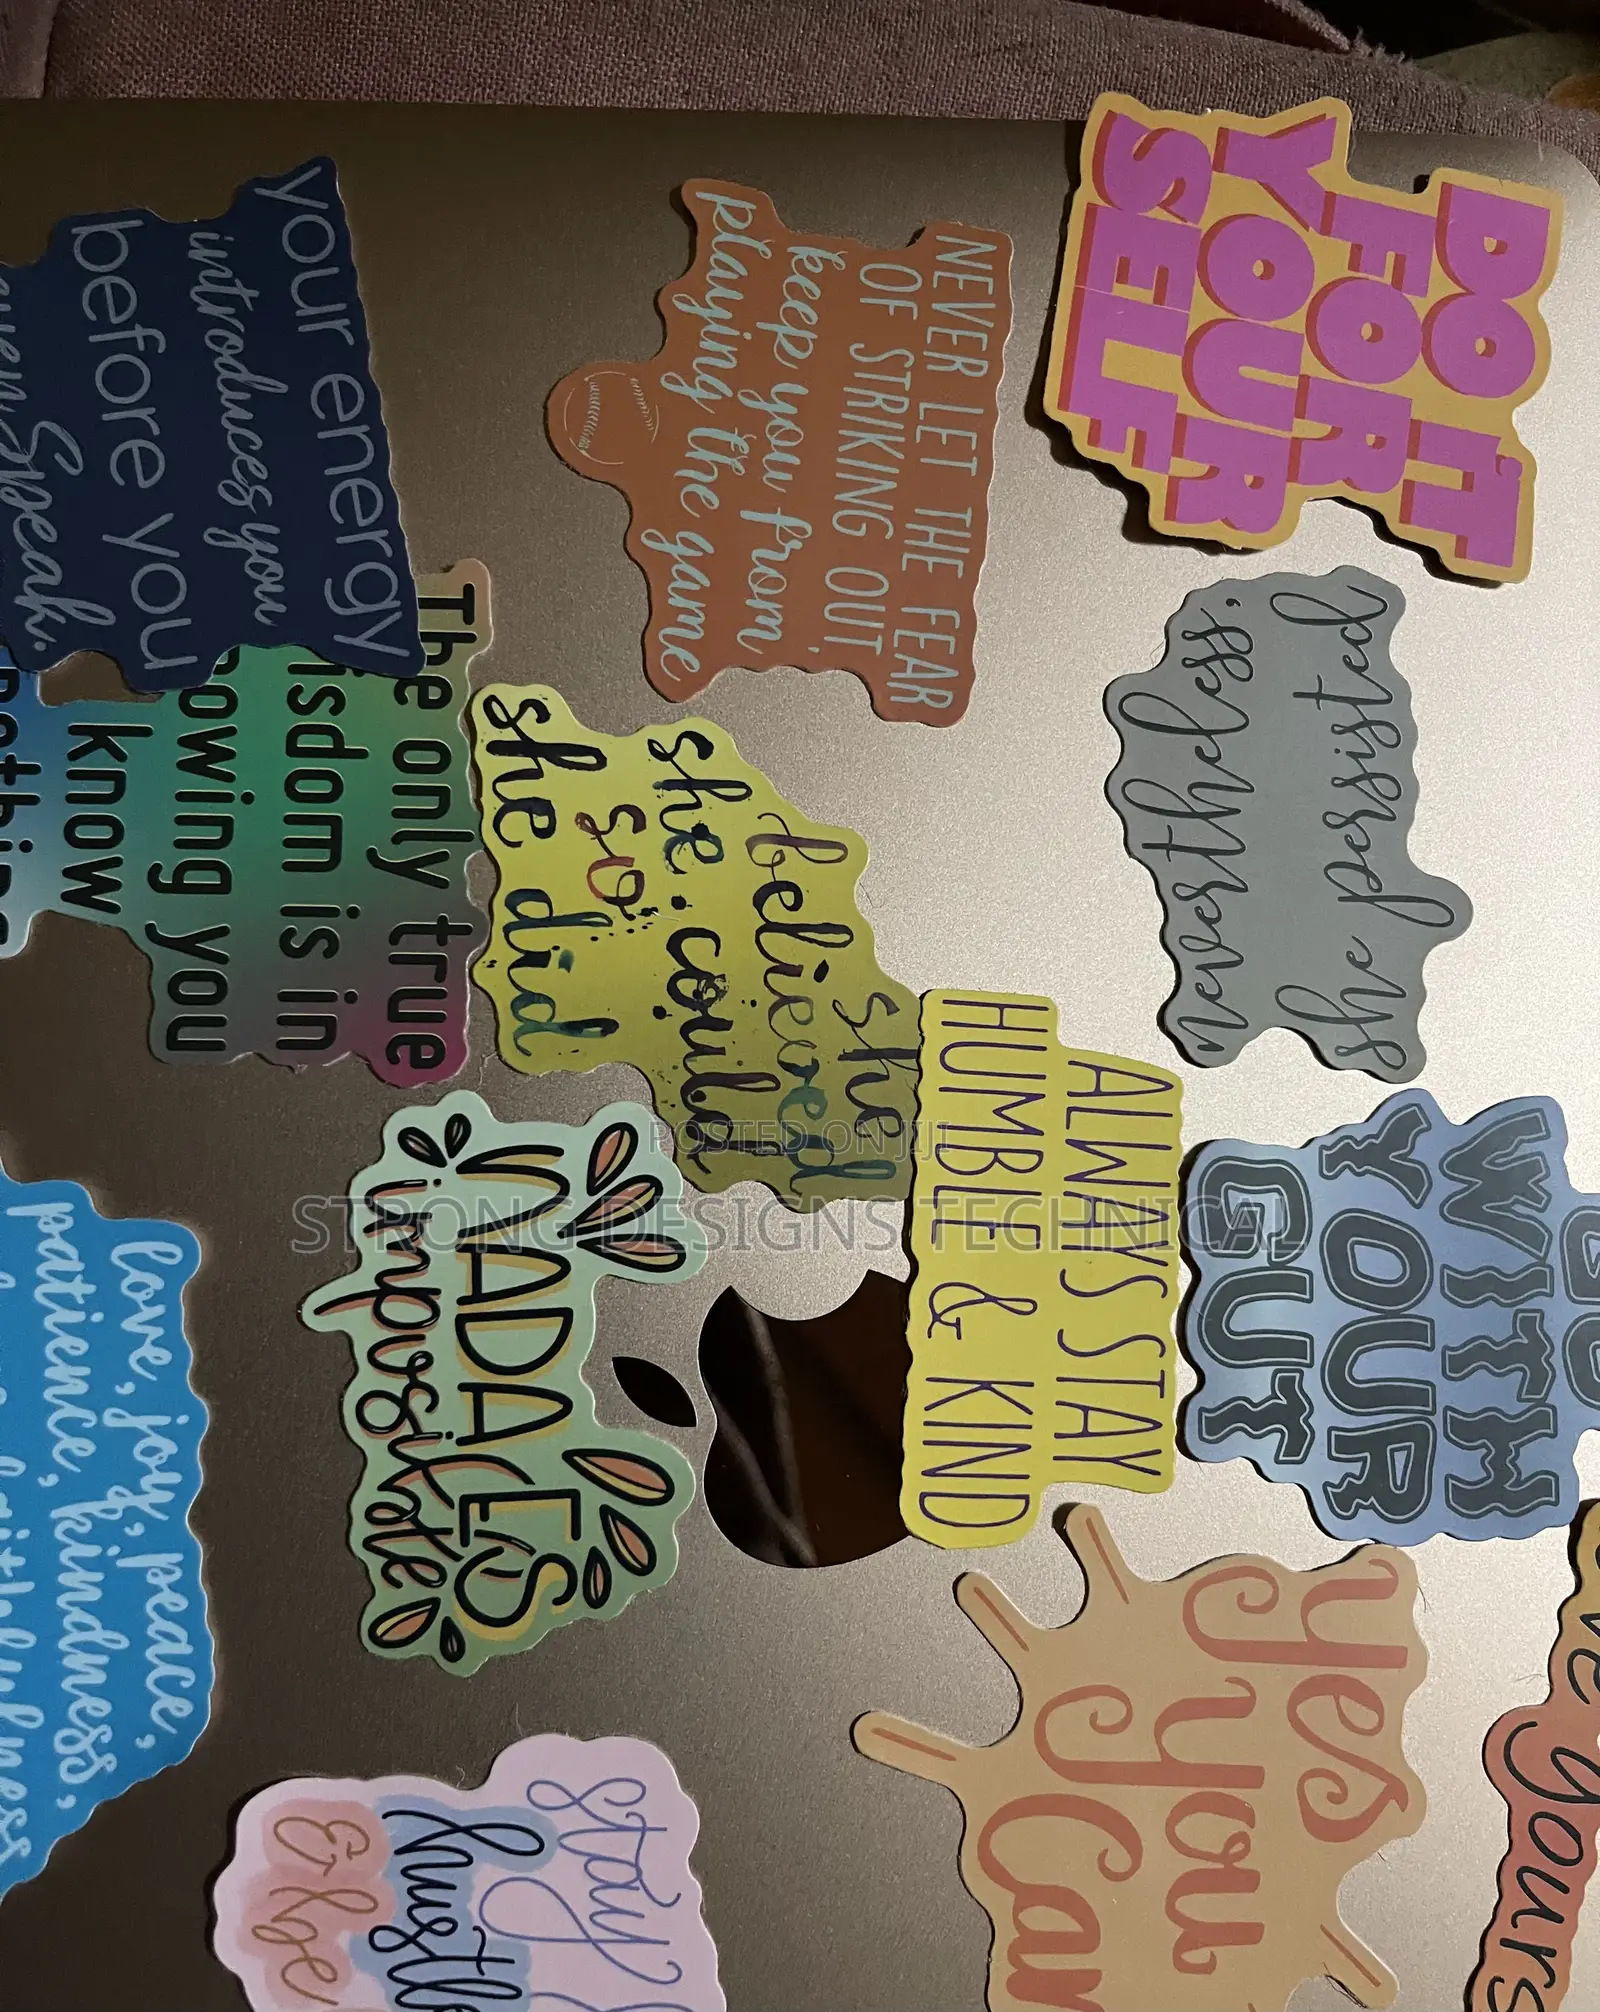 DO
FOR IT
YOUR
SELF
NEVER LET THE FEAR
OF STRIKING OUT,
keep you from
playing the game
your energy
introduces you
before you
Speak.
nevertheless,
she persisted
The only true
isdom is in
nowing you
know
nothing
she
believed
she could
so
she did
ALWAYS STAY
HUMBLE & KIND
GO
WITH
YOUR
GUT
MADALES
imposible
POSTED ON JIJI
STRONG DESIGNS TECHNICAL
love, joy, peace,
patience, kindness,
yes
you
Can
yours
stay
humble
& be